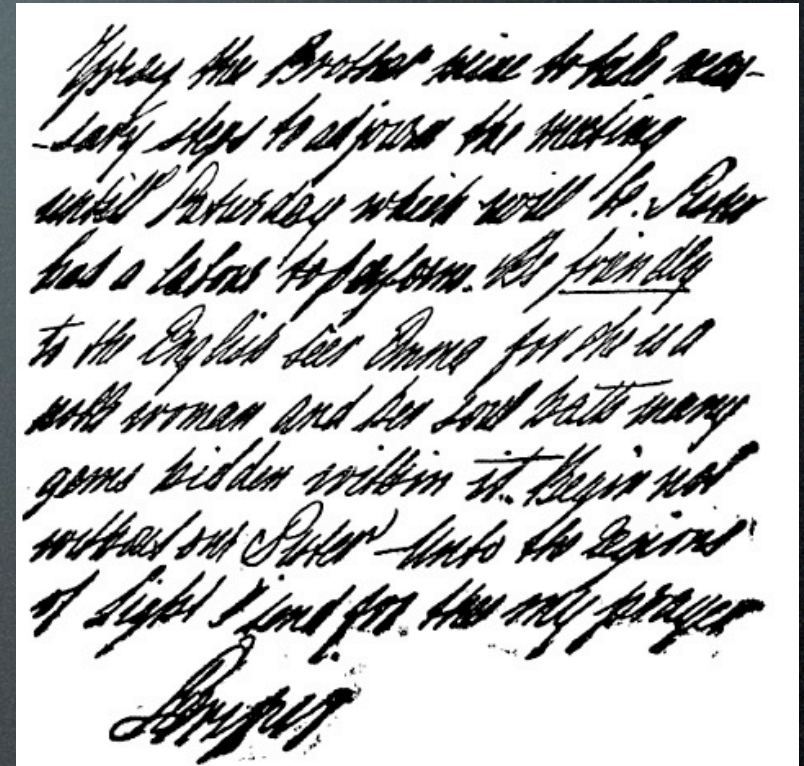 I pray thee Brother mine to take neces-
-sary steps to adjourn the meeting
untill Saturday which will be. Sister
has a labour to perform. Be friendly
to the English Seer Emma for she is a
noble woman and her soul hath many
gems hidden within it. Begin not
without our Sister – Unto the regions
of Light I send for thee my prayer
Serapis